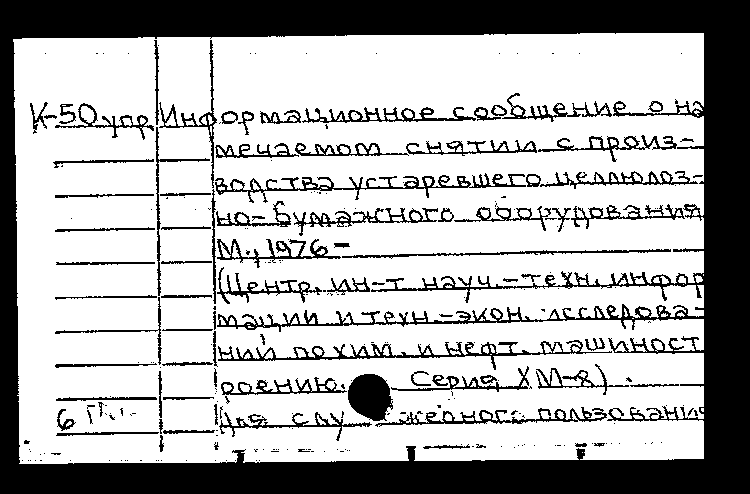 К-50 упр. Информационное сообщение о на
мечаемом снятии с произ-
водства устаревшего целлюлоз-
но-бумажного оборудования
М., 1976-
(Центр. ин-т науч.-техн. инфор
мации и техн.-экон. исследова-
ний по хим. и нефт. машиност
роению. Серия ХМ-8).
6 (Для служебного пользования